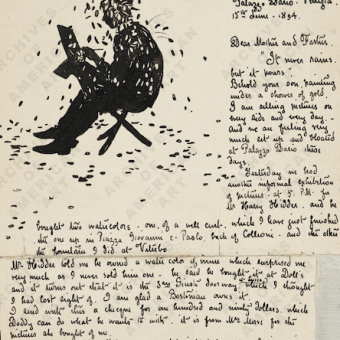 Palazzo Dario - Venezia.
15th June - 1894.
Dear Mother and Father.
It never rains
but it pours"
Behold your son painting
under a shower of gold
I am selling pictures on
every side and every day.
and we are feeling very
much set up and elated
at Palazzo Dario these
days.
Yesterday we had
another informal exhibition
of pictures at 5 P.M. for
Mr Harry Hidder. and he
bought two watercolors - one, of a well curb, which I have just finished
the one up in Piazza Giovanni e Paolo, back of Colleoni - and the other
the fountain I did at Viterbo
Mr Hidder told me he owned a water color of mine which surprised me
very much as I never sold him one - he said he bought it at Doll's
and it turns out that it is the San Giusi doorway which I thought
I had lost sight of. I am glad a Bostonian owns it.
I send with this a cheque for one hundred and ninety dollars, which
Daddy can do what he wants to with. it is from Mrs Morse for the
pictures she bought of me.
ARCHIVES
OF AMERICAN ART